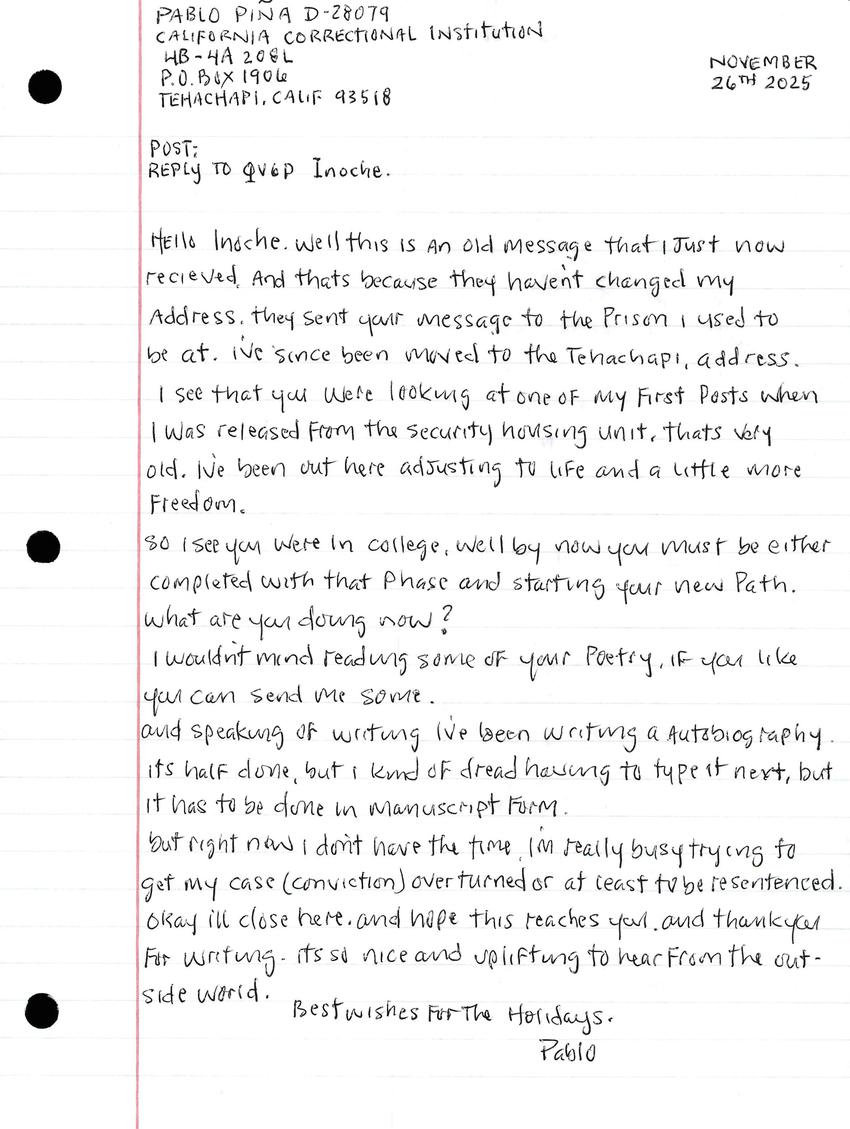 PABLO PIÑA D-28079
CALIFORNIA CORRECTIONAL INSTITUTION
4B-4A 208L
P.O. BOX 1906
TEHACHAPI, CALIF 93518
NOVEMBER
26TH 2025
POST:
REPLY TO qv6p Inoche.
Hello Inoche. Well this is an old message that I Just now
recieved. And thats because they haven't changed my
Address. they sent your message to the Prison I used to
be at. i've since been moved to the Tehachapi, address.
I see that you were looking at one of my First Posts when
I was released From the security housing unit, thats very
old. I've been out here adjusting to life and a little more
Freedom.
So I see you were in college, well by now you must be either
completed with that Phase and starting your new Path.
What are you doing now?
I wouldn't mind reading some of your Poetry, if you like
you can send me some.
and speaking of writing I've been writing a Autobiography.
its half done, but i kind of dread having to type it next, but
it has to be done in manuscript Form.
but right now I don't have the time, I'm really busy trying to
get my case (conviction) overturned or at least to be resentenced.
Okay ill close here. and hope this reaches you. and thank you
For writing. its so nice and uplifting to hear From the out-
side world.
Best wishes For The Holidays.
Pablo